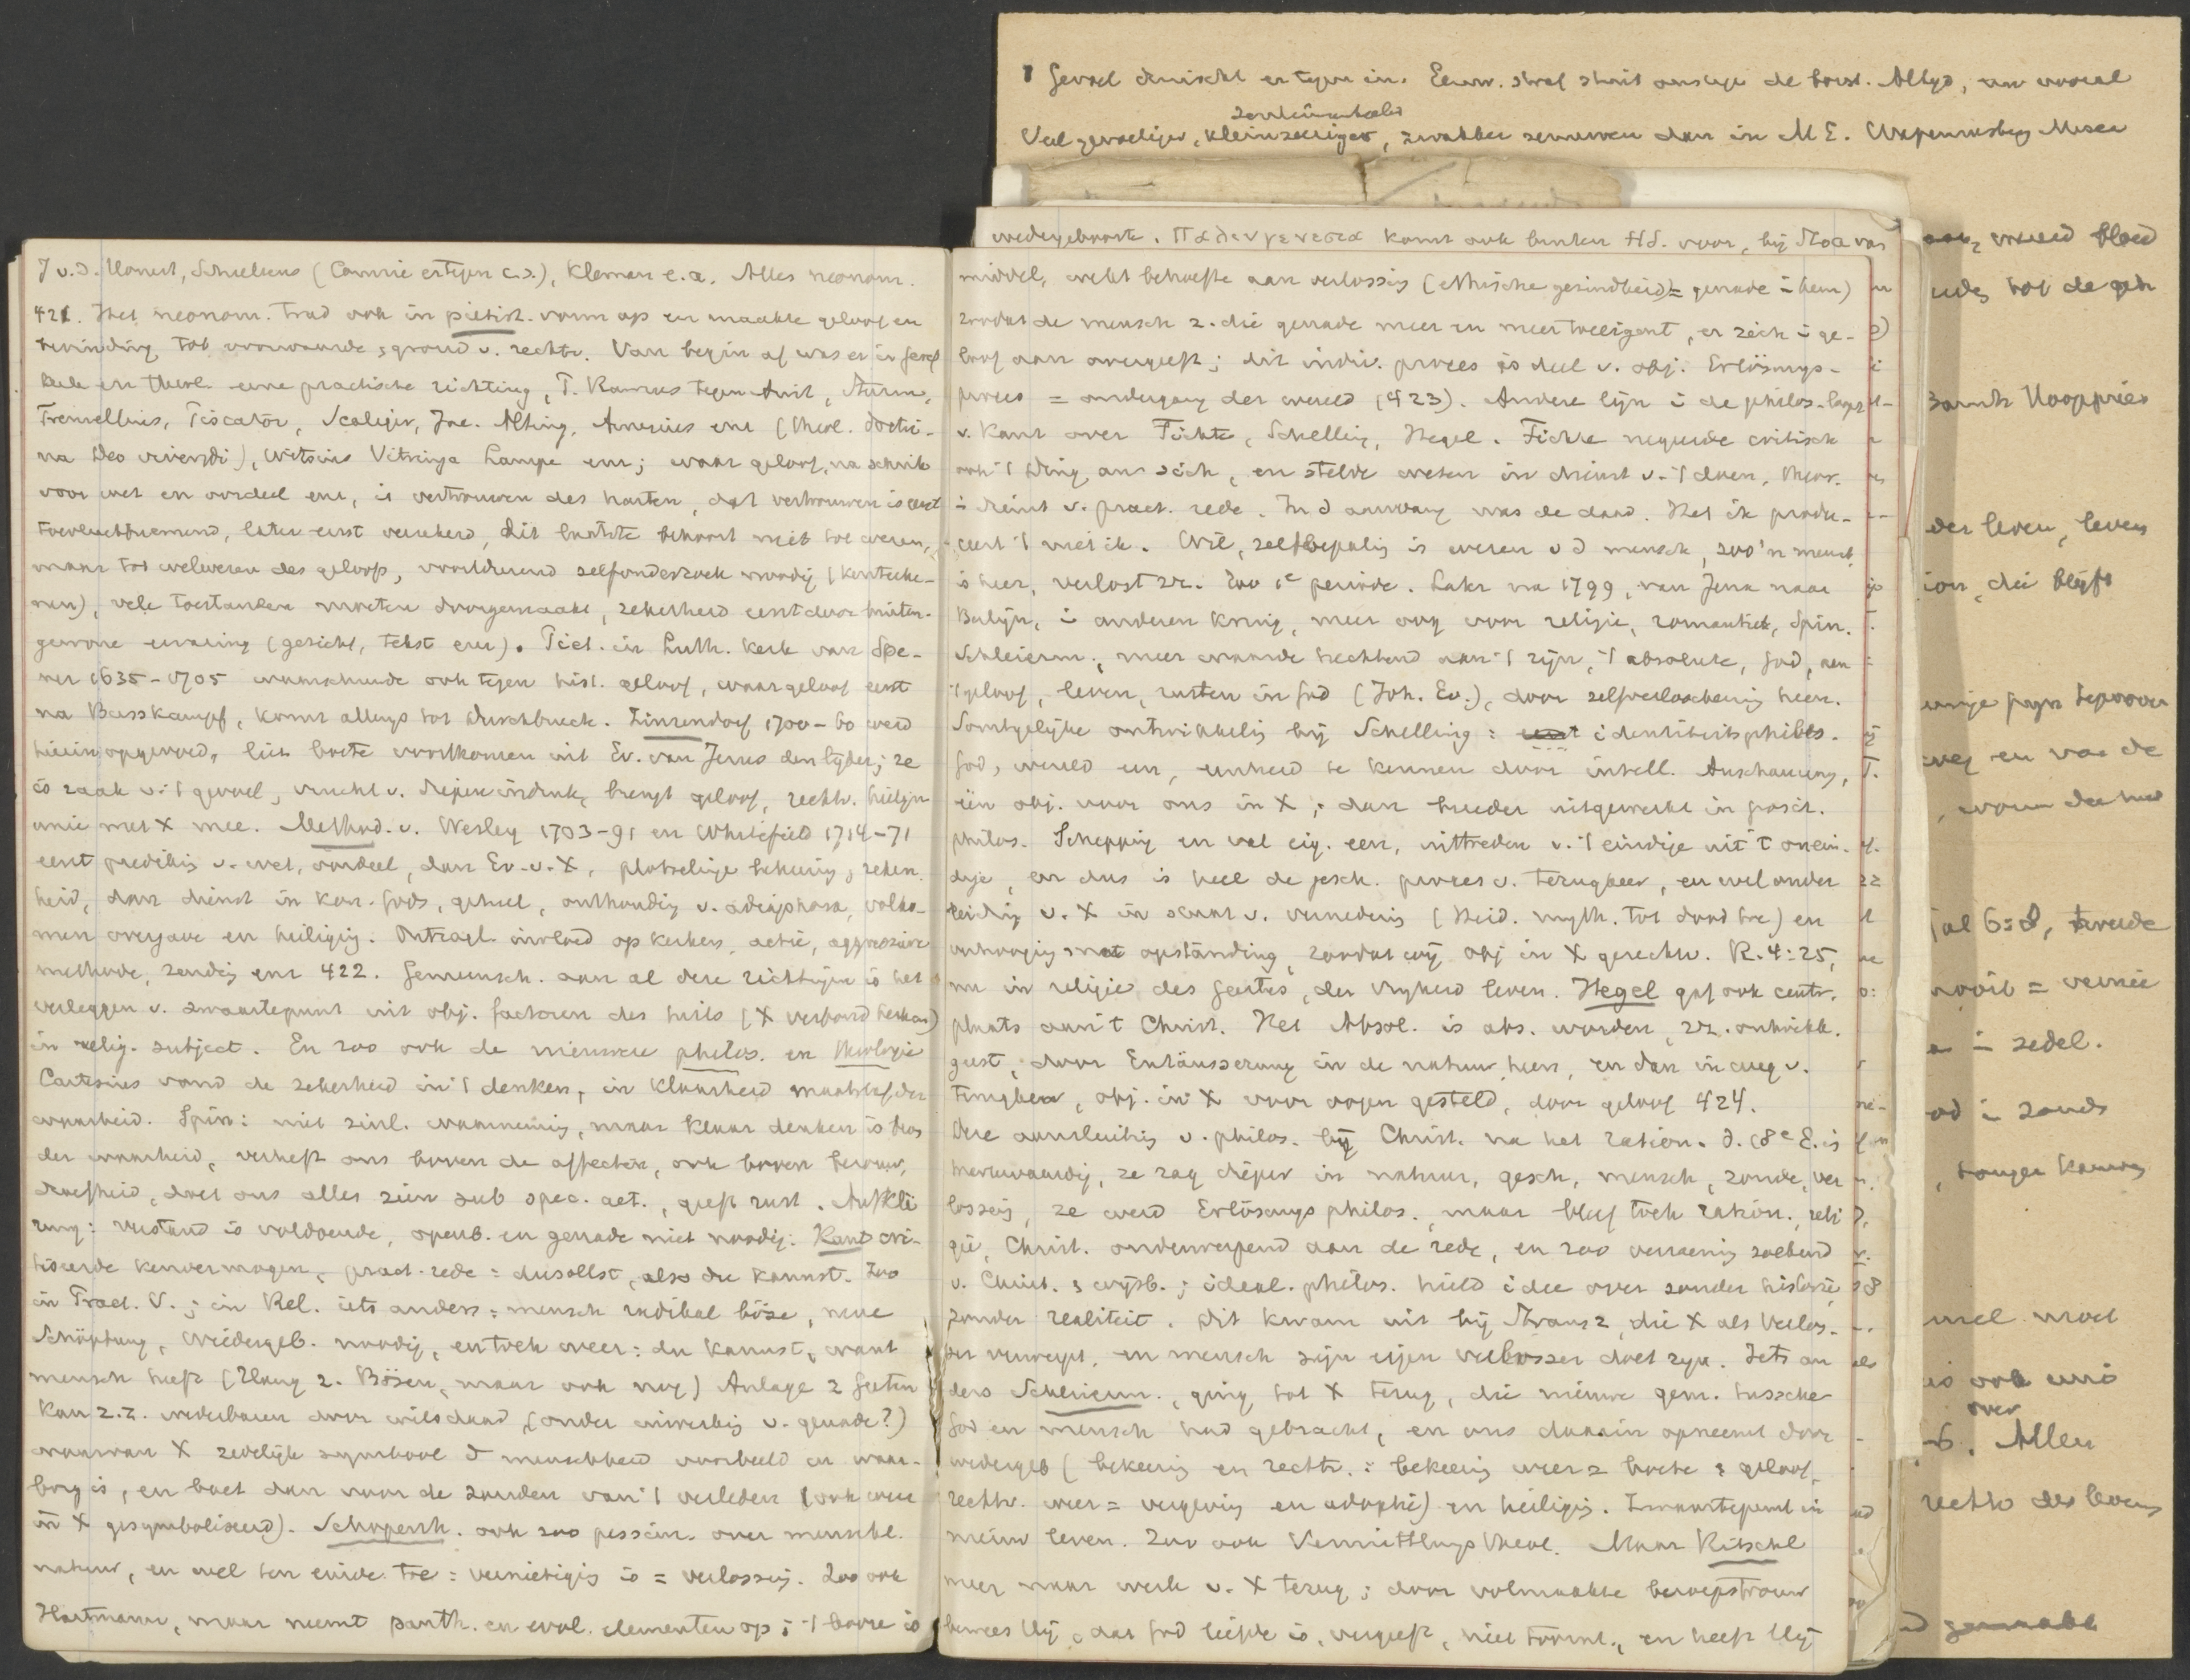 Gevoel druischt er tegen in. Eeuw. straf stuit onslieps de borst. Altijd, nu vooral
sentimenteeler
Veel gevoeliger, kleinzeeriger, zwakker zenuwen dan in M E.
wedergeboorte. Παλινγενεσια komt ook buiten H.S. voor, bij Stoa van
J v.d. Honert, Schultens (Comrie ertegen c.s.), Kleman e.a. Alles neonom.
421. Het neonom. trad ook in piëtist. vorm op en maakte geloof en
bevinding tot voorwaarde, grond v. rechtv. Van begin af was er in Geref
kerk en theol. eene practische richting, P. Ramus tegen Arist, Sturm,
Tremellius, Piscator, Scaliger, Jac. Alting, Amesius enz (theol. doctri-
na Deo vivendi), Witsius Vitringa Lampe enz; waar geloof, na schrik
voor wet en oordeel enz, is vertrouwen des harten, dat vertrouwen is eerst
toevluchtnemend, later eerst verzekerd, dit laatste behoort niet tot wezen,
maar tot welwezen des geloofs, voortdurend zelfonderzoek noodig (kenteeke-
nen), vele toestanden moeten doorgemaakt, zekerheid eerst door buiten-
gewone ervaring (gezicht, tekst enz). Piet. in Luth. kerk van Spe-
ner 1635-1705 waarschuwde ook tegen hist. geloof, waar geloof eerst
na Busskampf, komt allengs tot Durchbruch. Zinzendorf 1700-60 werd
hierin opgevoed, liet boete voortkomen uit Ev. van Jezus den lijder; ze
is zaak v. 't gevoel, vrucht v. diepen indruk, brengt geloof, rechtv. heiligm
unie met X mee. Method. v. Wesley 1703-91 en Whitefield 1714-71
eerst prediking v. wet, oordeel, dan Ev. v. X, plotselinge bekeering, zeker-
heid, dan dienst in kon. Gods, geheel, onthouding v. adiaphora, volko-
men overgave en heiliging. Ontzagl. invloed op kerken, actie, aggressieve
methode, zending enz 422. Gemeensch. aan al deze richtingen is het
verleggen v. zwaartepunt uit obj. factoren des heils (X verbond kerk enz)
in relig. subject. En zoo ook de nieuwere philos. en theologie
Cartesius vond de zekerheid in 't denken, in klaarheid maatstaf der
waarheid. Spin: niet zinl. waarneming, maar klaar denken is bron
der waarheid, verheft ons boven de affecten, ook boven berouw,
droefheid, doet ons alles zien sub spec. aet., geeft rust. Aufklä
rung: verstand is voldoende, openb. en genade niet noodig. Kant cri-
tiseerde kenvermogen, pract. rede = du sollst, also du kannst. Zoo
in Pract. V.; in Rel. iets anders: mensch radikal böse, neue
Schöpfung, Wiedergeb. noodig, en toch weer: du kannst, want
mensch heeft (Hang z. Bösen, maar ook nog) Anlage z Guten
kan z.z. wederbaren door wilsdaad (onder inwerking v. genade?)
waarvan X zedelijk symbool d menschheid voorbeeld en waar-
borg is, en boet dan voor de zonden van 't verleden (ook weer
in X gesymboliseerd). Schopenh. ook zoo pessim. over menschl.
natuur, en wel ten einde toe: vernietiging is = verlossing. Zoo ook
Hartmann, maar neemt panth. en evol. elementen op; 't booze is
middel, wekt behoefte aan verlossing (ethische gezindheid = genade in hem)
zoodat de mensch z. die genade meer en meer toeëigent, en zich in ge-
loof aan overgeeft; dit indiv. proces is deel v. obj. Erlösungs-
proces = ondergang der wereld (423). Andere lijn in de philos. loopt
v. Kant over Fichte, Schelling, Hegel. Fichte negeerde critisch
ook 't Ding an sich, en stelde wezen in dienst v. 't doen, theor.
in dienst v. pract. rede. In d aanvang was de daad. Het ik produ-
ceert 't niet ik. Wil, zelfbepaling is wezen v d mensch, zoo'n mensch
is heer, verlost zr. Zoo 1e periode. Later na 1799, van Jena naar
Berlijn, in anderen kring, meer oog voor religie, romantiek, Spin.
Schleierm., meer waarde hechtend aan 't zijn, 't absolute, God, aan
't geloof, leven, rusten in God (Joh. Ev.), door zelfverloochening heen.
Soortgelijke ontwikkeling bij Schelling: identiteitsphilos.
God, wereld een, eenheid te kennen door intell. Anschauung,
één obj. voor ons in X; dan breeder uitgewerkt in posit.
philos. Schepping en val eig. een, uittreden v. 't eindige uit 't onein-
dige, en dus is heel de gesch. proces v. terugkeer, en wel onder
leiding v. X in staat v. vernedering (Heid. myth. tot dood toe) en
verhooging met opstanding, zoodat wij obj in X gerechtv. R. 4:25,
nu in religie des Geestes, der vrijheid leven. Hegel gaf ook centr.
plaats aan 't Christ. Het Absol. is abs. worden, zr. ontwikk.
geest, door Entäusserung in de natuur heen, en dan in weg v.
terugkeer, obj. in X voor oogen gesteld, door geloof 424.
Deze aansluiting v. philos. bij Christ. na het ration. d. 18e E. is
merkwaardig, ze zag dieper in natuur, gesch, mensch, zonde, ver
lossing, ze werd Erlösungsphilos., maar bleef toch ration., reli
gie, Christ. onderwerpend aan de rede, en zoo verzoening zoekend
v. Christ. & wijsb.; ideal. philos. hield idee over zonder historie,
zonder realiteit. Dit kwam uit bij Strauss, die X als Verlos-
ser verwerpt, en mensch zijn eigen verlosser doet zijn. Iets an
ders Schleierm., ging tot X terug, die nieuwe gem. tussche
God en mensch had gebracht, en ons daarin opneemt door
wedergeb (bekeering en rechtv. = bekeering weer = boete & geloof,
rechtv. weer = vergeving en adoptie) en heiliging. Zwaartepunt in
nieuw leven. Zoo ook Vermittlungstheol. Maar Ritschl
meer naar werk v. X terug; door volmaakte beroepstrouw
bewees Hij, dat God liefde is, vergeeft, niet toornt, en heeft Hij
wereld bloed
der leven, leven
die blijft
weg en van de
tweede
nooit =
in zedel.
in zonde
moet
is ook eens
over
Allen
recht des levens